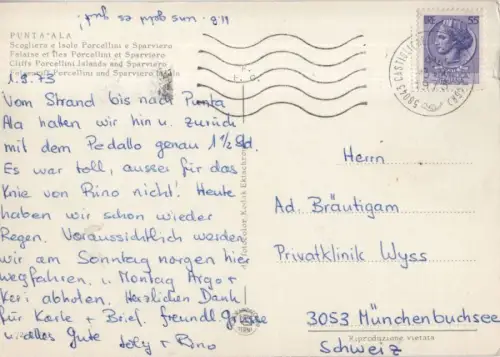 uns geht es gut!
PUNTA ALA
Scogliera e Isole Porcellini e Sparviero
Falaise et Îles Porcellini et Sparviero
Cliffs Porcellini Islands and Sparviero
Porcellini und Sparviero
1.9.73
Vom Strand bis nach Punta
Ala hatten wir hin u. zurück
mit dem Pedallo genau 1½ Std.
Es war toll, ausser für das
Knie von Rino nicht! Heute
haben wir schon wieder
Regen. Voraussichtlich werden
wir am Sonntag morgen hier
wegfahren, u. Montag Argo +
Keri abholen. Herzlichen Dank
für Karte + Brief. freundl. Grüsse
u. alles Gute
Rino
Kodak Ektachrome
58043 CASTIGLIONE
Herrn
Ad. Bräutigam
Privatklinik Wyss
3053 Münchenbuchsee
Riproduzione vietata
Schweiz